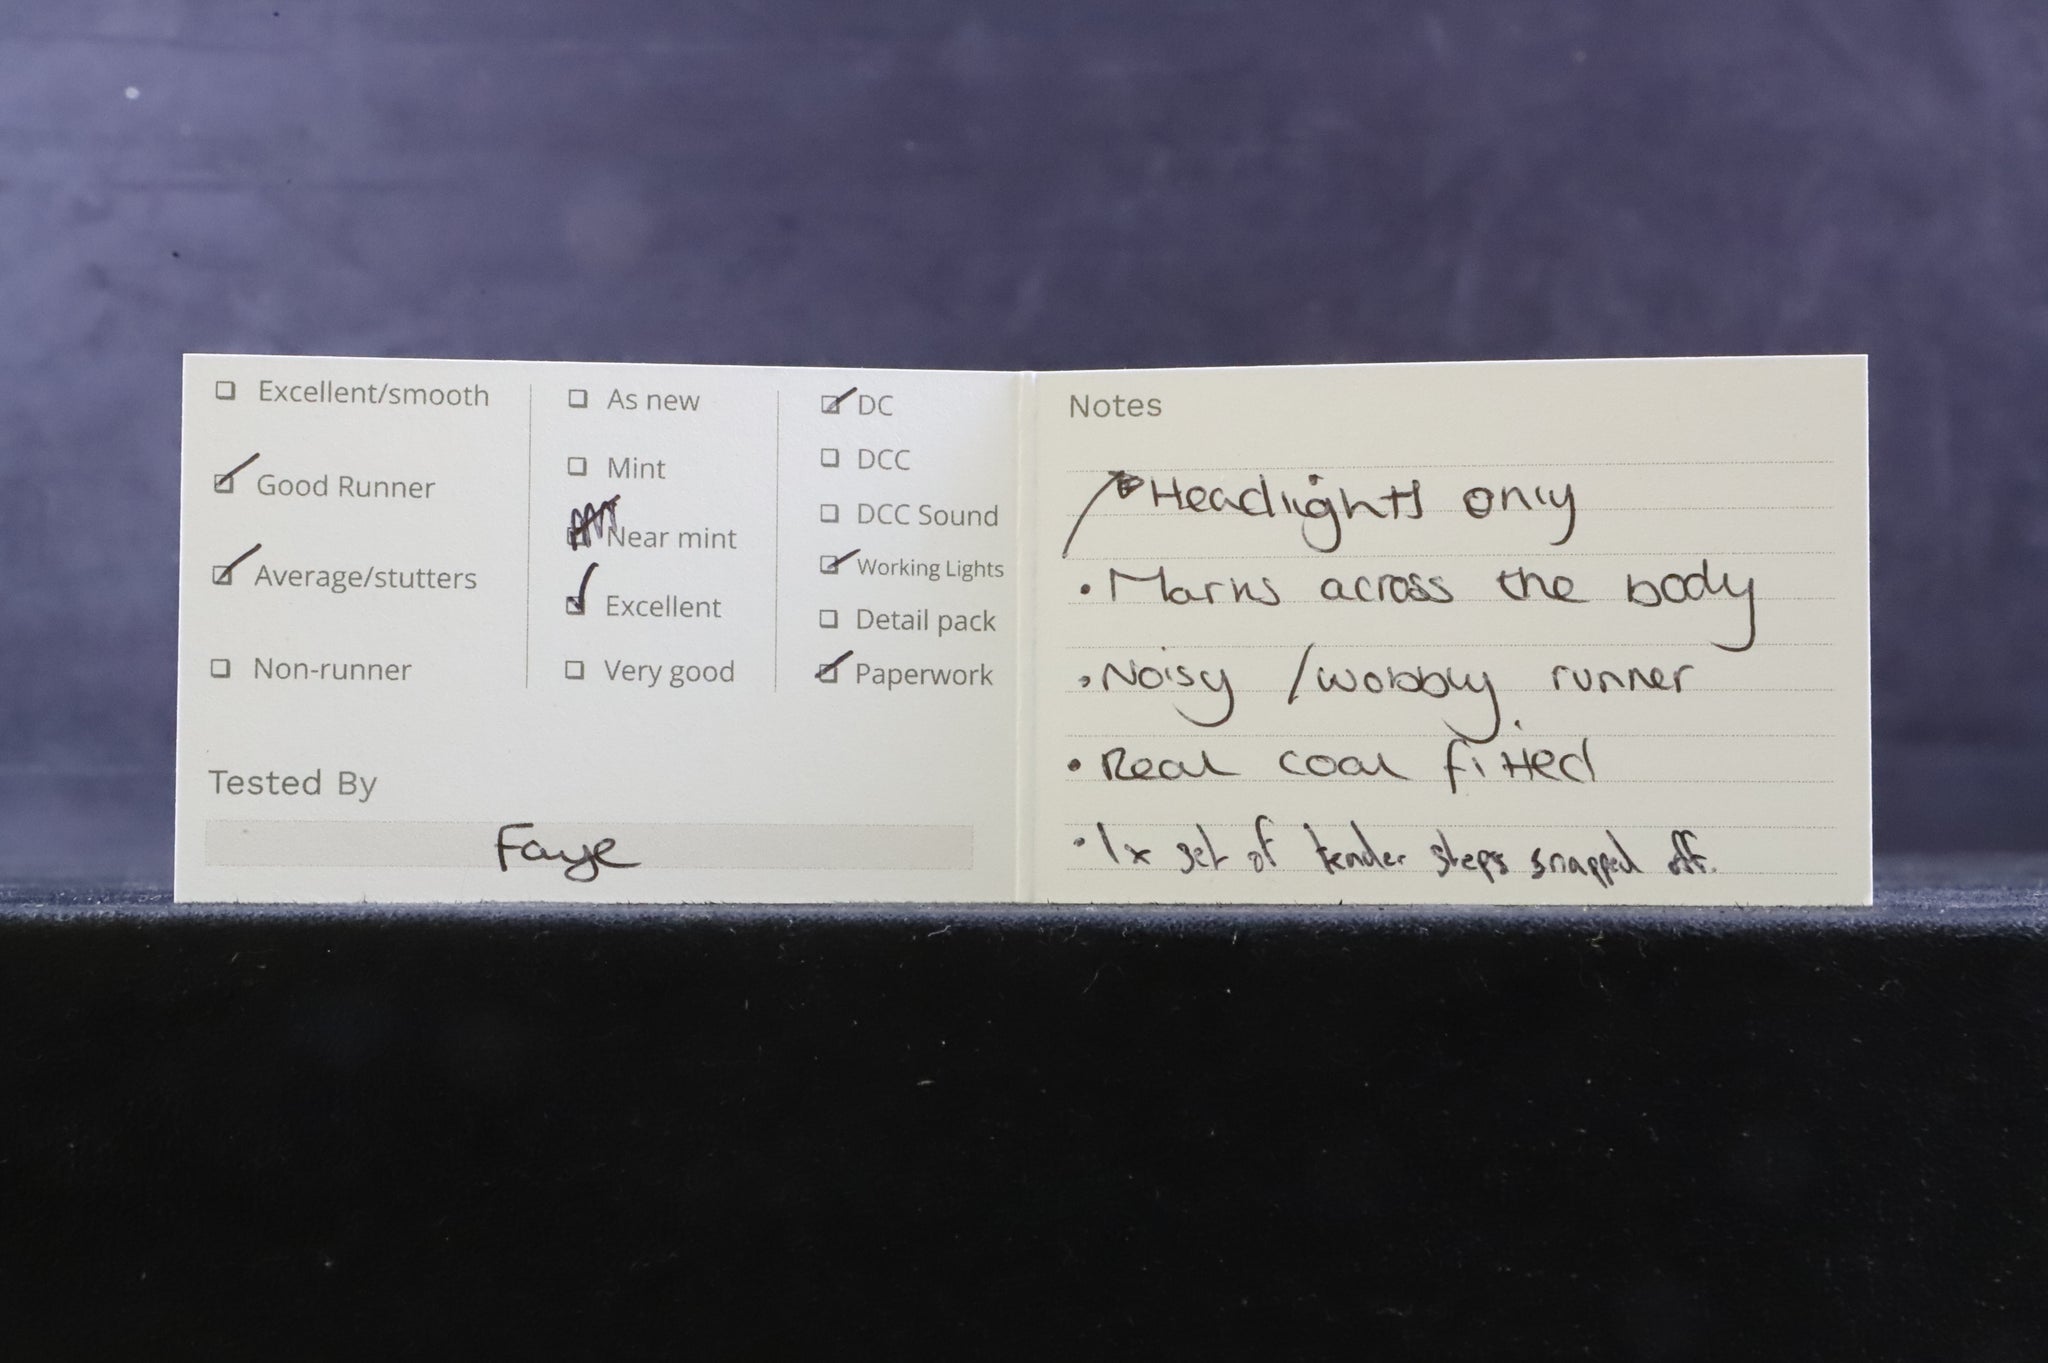 Excellent/smooth
Good Runner
Average/stutters
Non-runner
As new
Mint
Near mint
Excellent
Very good
DC
DCC
DCC Sound
Working Lights
Detail pack
Paperwork
Tested By
Faye
Notes
Headlights only
• Marks across the body
• Noisy /wobbly runner
• Real coal fitted
• 1x set of tender steps snapped off.